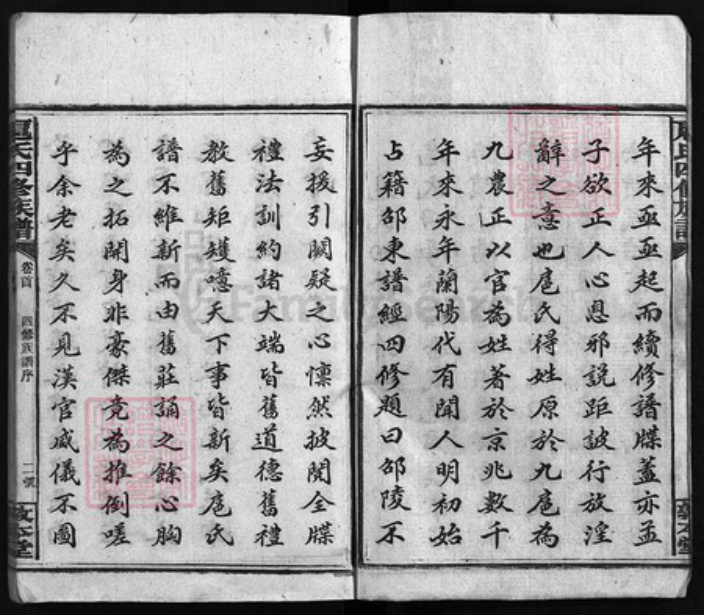 年來亟亟起而續修譜牒蓋亦孟
子欲正人心息邪說距詖行放淫
辭之意也扈氏得姓原於九扈為
九農正以官為姓著於京兆數千
年來永年蘭陽代有聞人明初始
占籍邵東譜經四修題曰邵陵不
妄援引闕疑之心懍然披閱全牒
禮法訓約諸大端皆舊道德舊禮
教舊矩矱噫天下事皆新矣扈氏
譜不維新而由舊莊誦之餘心胸
為之拓開身非豪傑竟為推倒嗟
乎余老矣久不見漢官威儀不圖
扈氏四修族譜
卷首
四修族譜序
二號
敦本堂